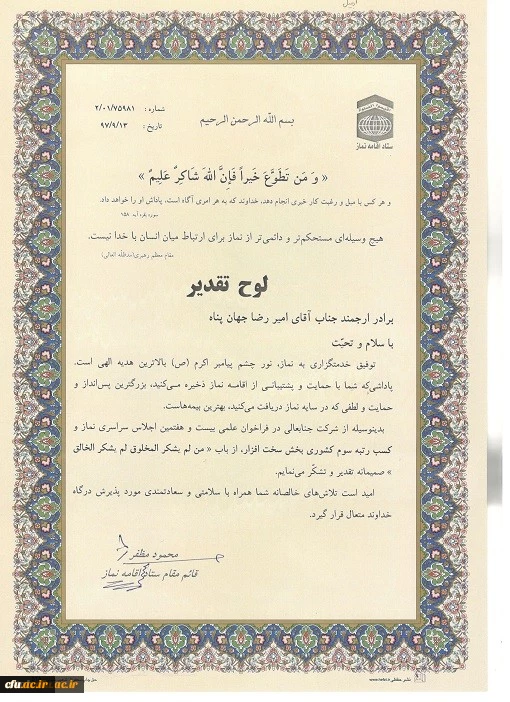 شماره : ۲/۰۱/۷۵۹۸۱
تاریخ : ۹۷/۹/۱۳
بسم الله الرحمن الرحیم
ستاد اقامه نماز
« وَ مَن تَطَوَّعَ خَیراً فَإِنَّ اللهَ شَاکِرٌ عَلِیمٌ »
و هر کس با میل و رغبت کار خیری انجام دهد، خداوند که به هر امری آگاه است، پاداش او را خواهد داد.
سوره بقره آیه ۱۵۸
هیچ وسیله‌ای مستحکم‌تر و دائمی‌تر از نماز برای ارتباط میان انسان با خدا نیست.
مقام معظم رهبری(مدظلّه العالی)
لوح تقدیر
برادر ارجمند جناب آقای امیر رضا جهان پناه
با سلام و تحیّت
توفیق خدمتگزاری به نماز، نور چشم پیامبر اکرم (ص) بالاترین هدیه الهی است.
پاداشی‌که شما با حمایت و پشتیبانی از اقامه نماز ذخیره می‌کنید، بزرگترین پس‌انداز و
حمایت و لطفی که در سایه نماز دریافت می‌کنید، بهترین بیمه‌هاست.
بدینوسیله از شرکت جنابعالی در فراخوان علمی بیست و هفتمین اجلاس سراسری نماز و
کسب رتبه سوم کشوری بخش سخت افزار، از باب « من لم یشکر المخلوق لم یشکر الخالق
» صمیمانه تقدیر و تشکّر می‌نمایم.
امید است تلاش‌های خالصانه شما همراه با سلامتی و سعادتمندی مورد پذیرش درگاه
خداوند متعال قرار گیرد.
محمود مظفر
قائم مقام ستاد اقامه نماز
cfu.ac.ir